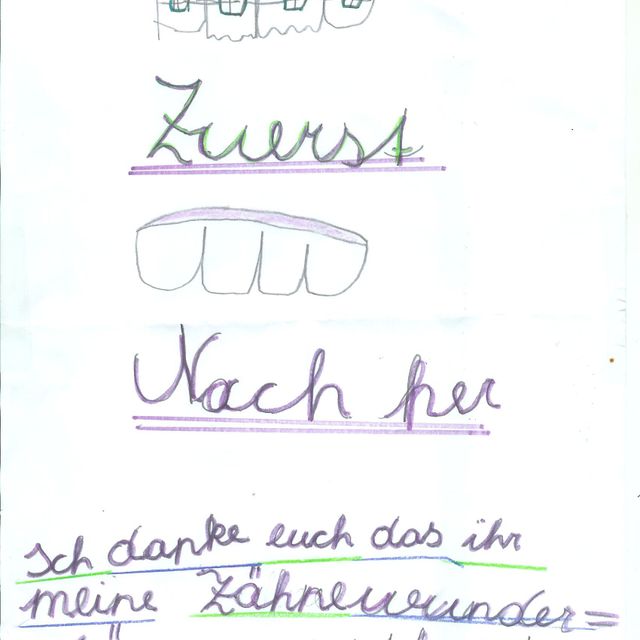 Zuerst
Nach her
Ich danke euch das ihr
meine Zähnewunder=